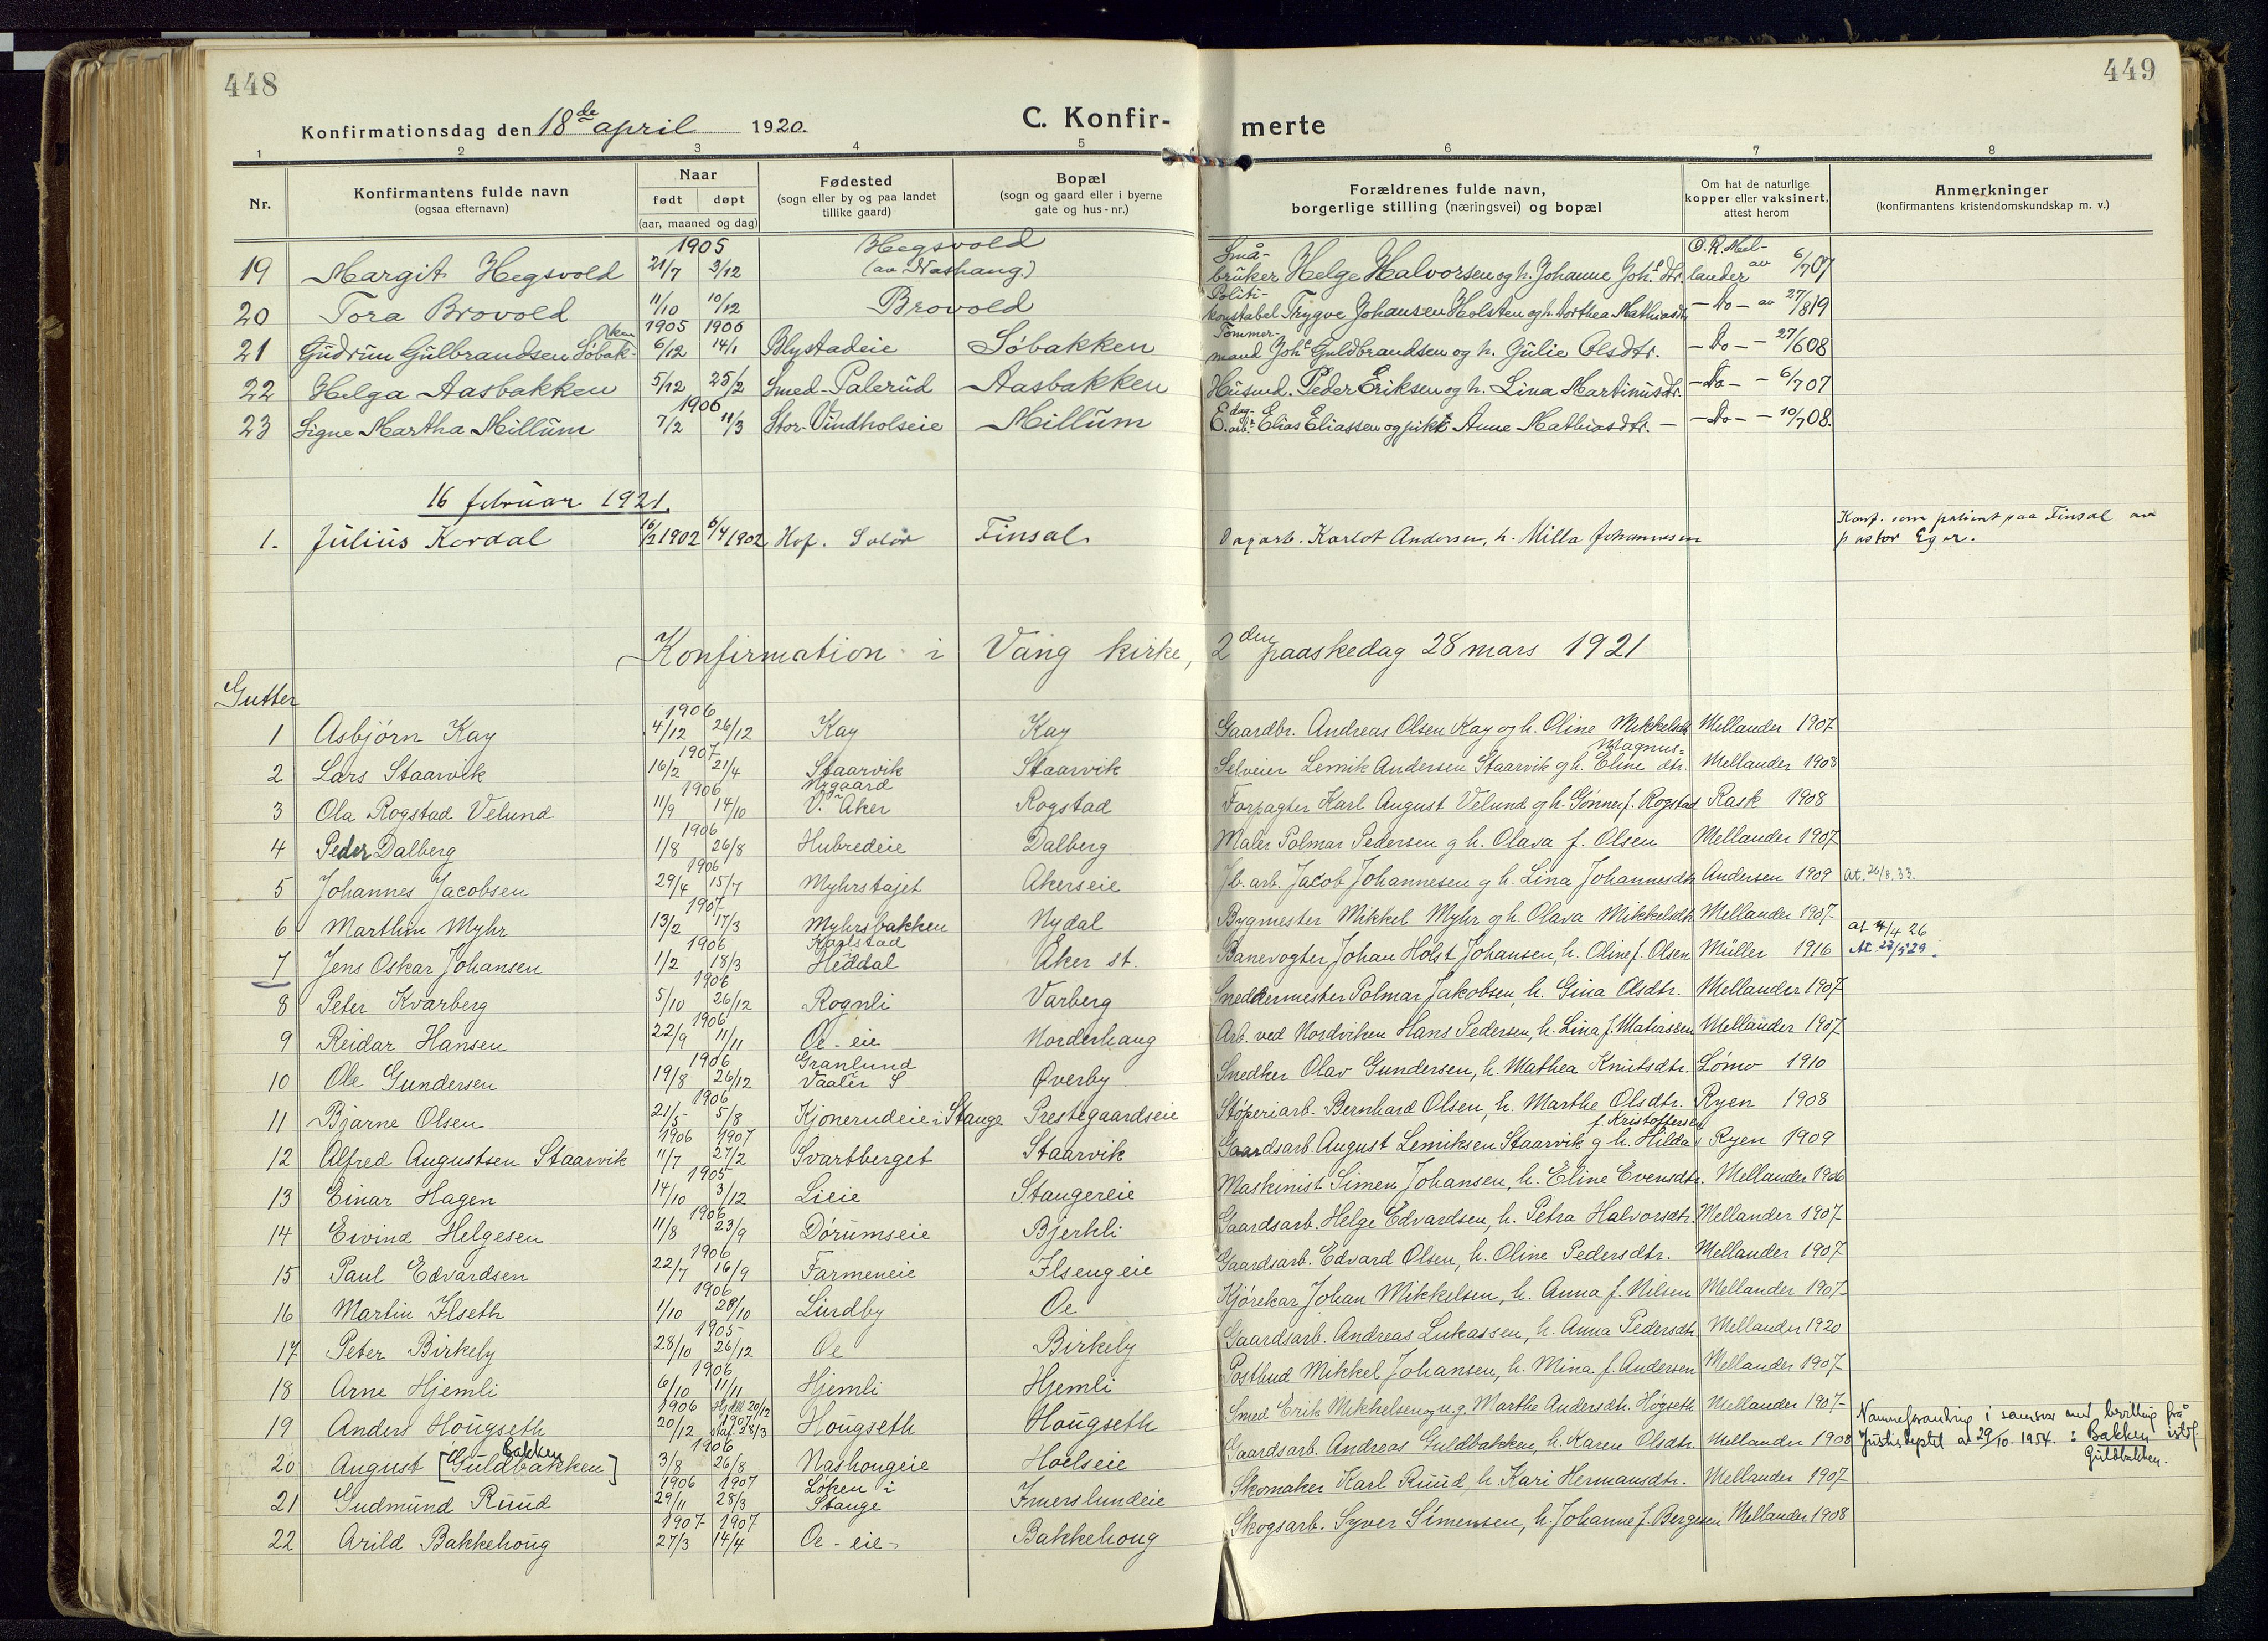 448
449
Konfirmationsdag den 18de april 1920.
C. Konfir-merte
1 2 3 4 5 6 7 8
Nr.
Konfirmantens fulde navn
(ogsaa efternavn)
Naar
født døpt
(aar, maaned og dag)
Fødested
(sogn eller by og paa landet
tillike gaard)
Bopæl
(sogn og gaard eller i byerne
gate og hus-nr.)
Forældrenes fulde navn,
borgerlige stilling (næringsvei) og bopæl
Om hat de naturlige
kopper eller vaksinert,
attest herom
Anmerkninger
(konfirmantens kristendomskundskap m. v.)
1905 Hegsvold Små- O. R. Mel-
19 Margit Hegsvold 21/7 3/12 (av Nashaug.) bruker Helge Halvorsen og h. Johanne Joh.s dtr. lander av 6/7 07
Politi-
20 Tora Brovold 11/10 10/12 Brovold konstabel Trygve Johansen Holsten og h. Dorthea Mathiasdtr. - do - av 27/8 19
1905 1906 Tømmer-
21 Gudrun Gulbrandsen Søbakken 6/12 14/1 Blystadeie Søbakken mand Joh.s Guldbrandsen og h. Gulie Olsdtr. - do - - 27/6 08
22 Helga Aasbakken 5/12 25/2 Smed-Palerud Aasbakken Husmd. Peder Eriksen og h. Lina Martinusdtr. - do - - 6/7 07
1906
23 Signe Martha Millum 7/2 11/3 Stor-Vindholseie Millum E. dag-arb.r Elias Eliassen og pike Anne Mathiasdtr. - - do - - 10/7 08.
16 februar 1921.
1. Julius Kordal 16/2 1902 6/4 1902 Hof. Solør Finsal Dagarb. Karlot Andersen, h. Milla Johannesen Konf. som patient paa Finsal av
pastor Eger.
Konfirmation i Vang kirke, 2den paaskedag 28 mars 1921
Gutter
1906
1 Asbjørn Kay 4/12 26/12 Kay Kay Gaardbr. Andreas Olsen Kay og h. Oline Mikkelsdtr. Mellander 1907
1907 Magnus-
2 Lars Staarvik 16/2 21/4 Staarvik Staarvik Selveier Lemik Andersen Staarvik og h. Eline dtr. Mellander 1908
1906 Nygaard
3 Ola Rogstad Velund 11/9 14/10 V. Aker Rogstad Forpagter Karl August Velund og h. Gønner f. Rogstad Rask 1908
1906
4 Peder Dalberg 1/8 26/8 Hubredeie Dalberg Maler Polmar Pedersen og h. Olava f. Olsen Mellander 1907
1906
5 Johannes Jacobsen 29/4 15/7 Myhrstajet Akerseie Jb. arb. Jacob Johannesen og h. Lina Johannesdtr. Andersen 1909 at. 26/8. 33.
1907
6 Marthin Myhr 13/2 17/3 Myhrsbakken Nydal Bygmester Mikkel Myhr og h. Olava Mikkelsdtr. Mellander 1907
1906 Karlstad at 7/4 26
7 Jens Oskar Johansen 1/2 18/3 Heddal Aker st. Banevogter Johan Holst Johansen, h. Oline f. Olsen Müller 1916 At. 23/5 29.
1906
8 Peter Kvarberg 5/10 26/12 Rognli Varberg Snedkermester Polmar Jakobsen, h. Gina Olsdtr. Mellander 1907
1906
9 Reidar Hansen 22/9 11/11 Oe-eie Norderhaug Arb. ved Nordviken Hans Pedersen, h. Lina f. Matiassen Mellander 1907
1906 Granlund
10 Ole Gundersen 19/8 26/12 Vaaler S Øverby Snedker Olav Gundersen, h. Mathea Knutsdtr. Lømo 1910
1906
11 Bjarne Olsen 21/5 5/8 Kjonerudeie i Stange Prestegaardseie Støperiarb. Bernhard Olsen, h. Marthe Olsdtr. Ryen 1908
1906 1907 f. Kristoffersen
12 Alfred Augustsen Staarvik 11/7 27/2 Svartberget Staarvik Gaardsarb. August Lemiksen Staarvik og h. Hilda Ryen 1909
1905
13 Einar Hagen 14/10 3/12 Lieie Stangereie Maskinist Simen Johansen, h. Eline Evensdtr. Mellander 1906
1906
14 Eivind Helgesen 11/8 23/9 Dørumseie Bjerkli Gaardsarb. Helge Edvardsen, h. Petra Halvorsdtr. Mellander 1907
1906
15 Paul Edvardsen 22/7 16/9 Farmeneie Ilsengeie Gaardsarb. Edvard Olsen, h. Oline Pedersdtr. Mellander 1907
1906
16 Martin Ilseth 1/10 28/10 Lindby Oe Kjørekar Johan Mikkelsen, h. Anna f. Nilsen Mellander 1907
1905
17 Peter Birkely 28/10 26/12 Oe Birkely Gaardsarb. Andreas Lukassen, h. Anna Pedersdtr. Mellander 1920
1906
18 Arne Hjemli 6/10 11/11 Hjemli Hjemli Postbud Mikkel Johansen, h. Mina f. Andersen Mellander 1907
1906 Hjdl 20/12 1907
19 Anders Hougseth 20/12 staf. 28/3 Hougseth Hougseth Smed Erik Mikkelsen og u.g. Marthe Andersdtr. Høgseth Mellander 1907
1906 Bakken
20 August [Guldbakken] 3/8 26/8 Nashougeie Hoelseie Gaardsarb. Andreas Guldbakken, h. Karen Olsdtr. Mellander 1908 Namneforandring i samsvar med brev frå
Justisdeptet av 29/10. 1954. : Bakken istf.
Guldbakken.
1906 1907 Løken i
21 Gudmund Ruud 29/11 28/3 Stange Imerslundeie Skomaker Karl Ruud, h. Kari Hermansdtr. Mellander 1907
1907 1907
22 Arild Bakkehoug 27/3 14/4 Oe-eie Bakkehoug Skogsarb. Syver Simensen, h. Johanne f. Bergesen Mellander 1908